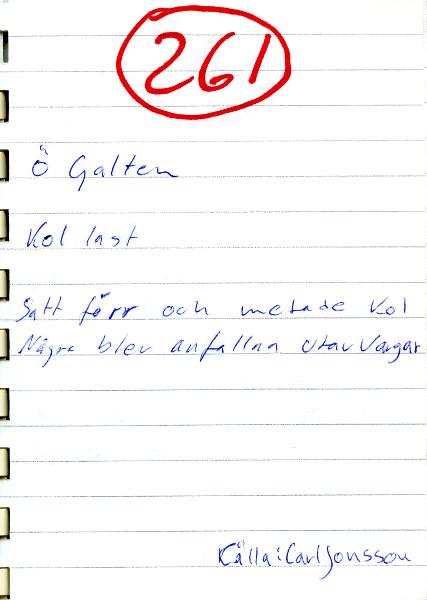 261
Ö Galten
Kol last
Satt förr och metade Kol
Några blev anfallna utav Vargar
Källa: Carl Jonsson